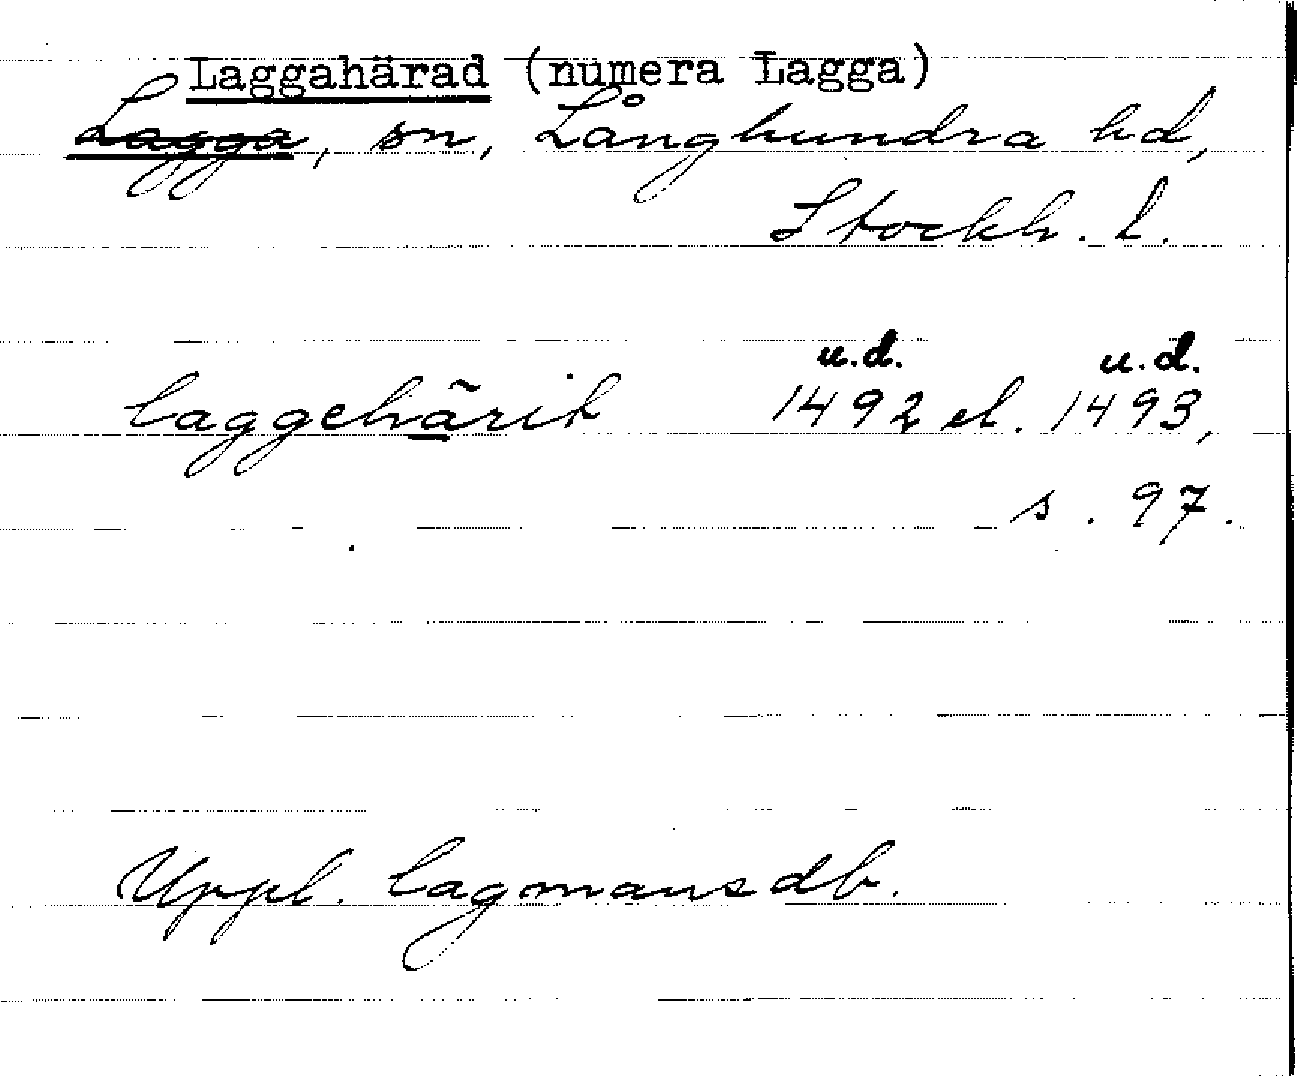 Laggahärad (numera Lagga)
Lagga, sn, Långhundra hd,
Stockh. l.
u.d. u.d.
laggehärit 1492 el. 1493,
s. 97.
Uppl. lagmansdb.